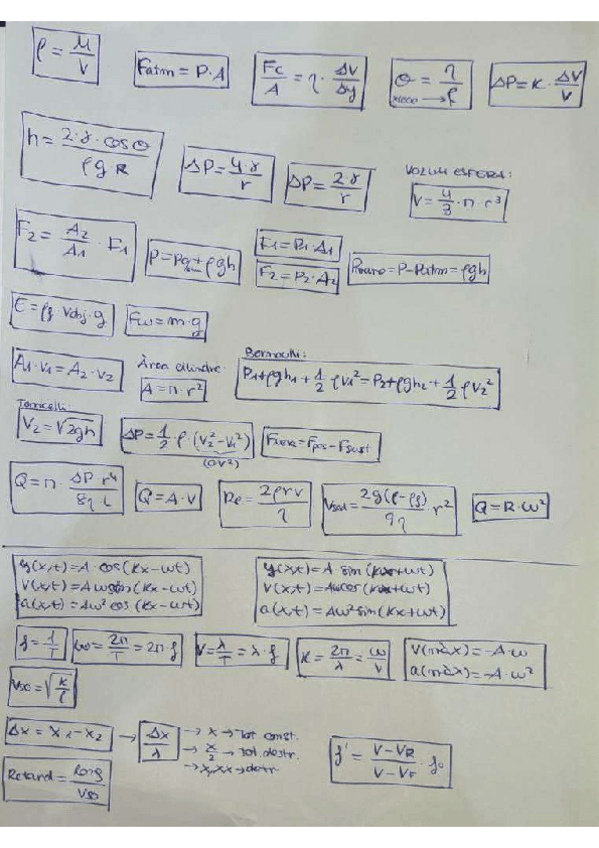 ρ = μ/V
Fatm = P·A
Fc/A = η · Δv/Δy
ΔP = K · ΔV/V
h = 2·γ·cosθ/ρgR
ΔP = 4·γ/r
ΔP = 2·γ/r
VOLUM ESFERA:
V = 4/3·π·r³
F₂ = A₂/A₁ · F₁
F₁ = P₁·A₁
F₂ = P₂·A₂
P-Patm = ρgh
Fw = m·g
A₁·v₁ = A₂·v₂
Àrea cilindre:
A = π·r²
Bernoulli:
P₁+ρgh₁+1/2ρv₁² = P₂+ρgh₂+1/2ρv₂²
Torricelli:
V₂ = √2gh
ΔP = 1/2·ρ·(V₂²-V₁²)
(ΔV²)
Q = π·ΔP·r⁴/8η·L
Q = A·v
Re = 2ρrv/η
Vsed = 2g(ρ-ρf)/9η·r²
Q = R·ω²
y(x,t) = A·cos(Kx-ωt)
v(x,t) = Aωsin(Kx-ωt)
a(x,t) = Aω²cos(Kx-ωt)
y(x,t) = A·sin(Kx+ωt)
v(x,t) = Aωcos(Kx+ωt)
a(x,t) = Aω²sin(Kx+ωt)
f = 1/T
ω = 2π/T = 2π·f
V = λ/T = λ·f
K = 2π/λ = ω/V
v(màx) = -A·ω
a(màx) = -A·ω²
Δx = x₁-x₂
→ Δx/λ
→ x → Tot const.
→ x/2 → Tot destr.
f' = V-VR/V-VF · f₀